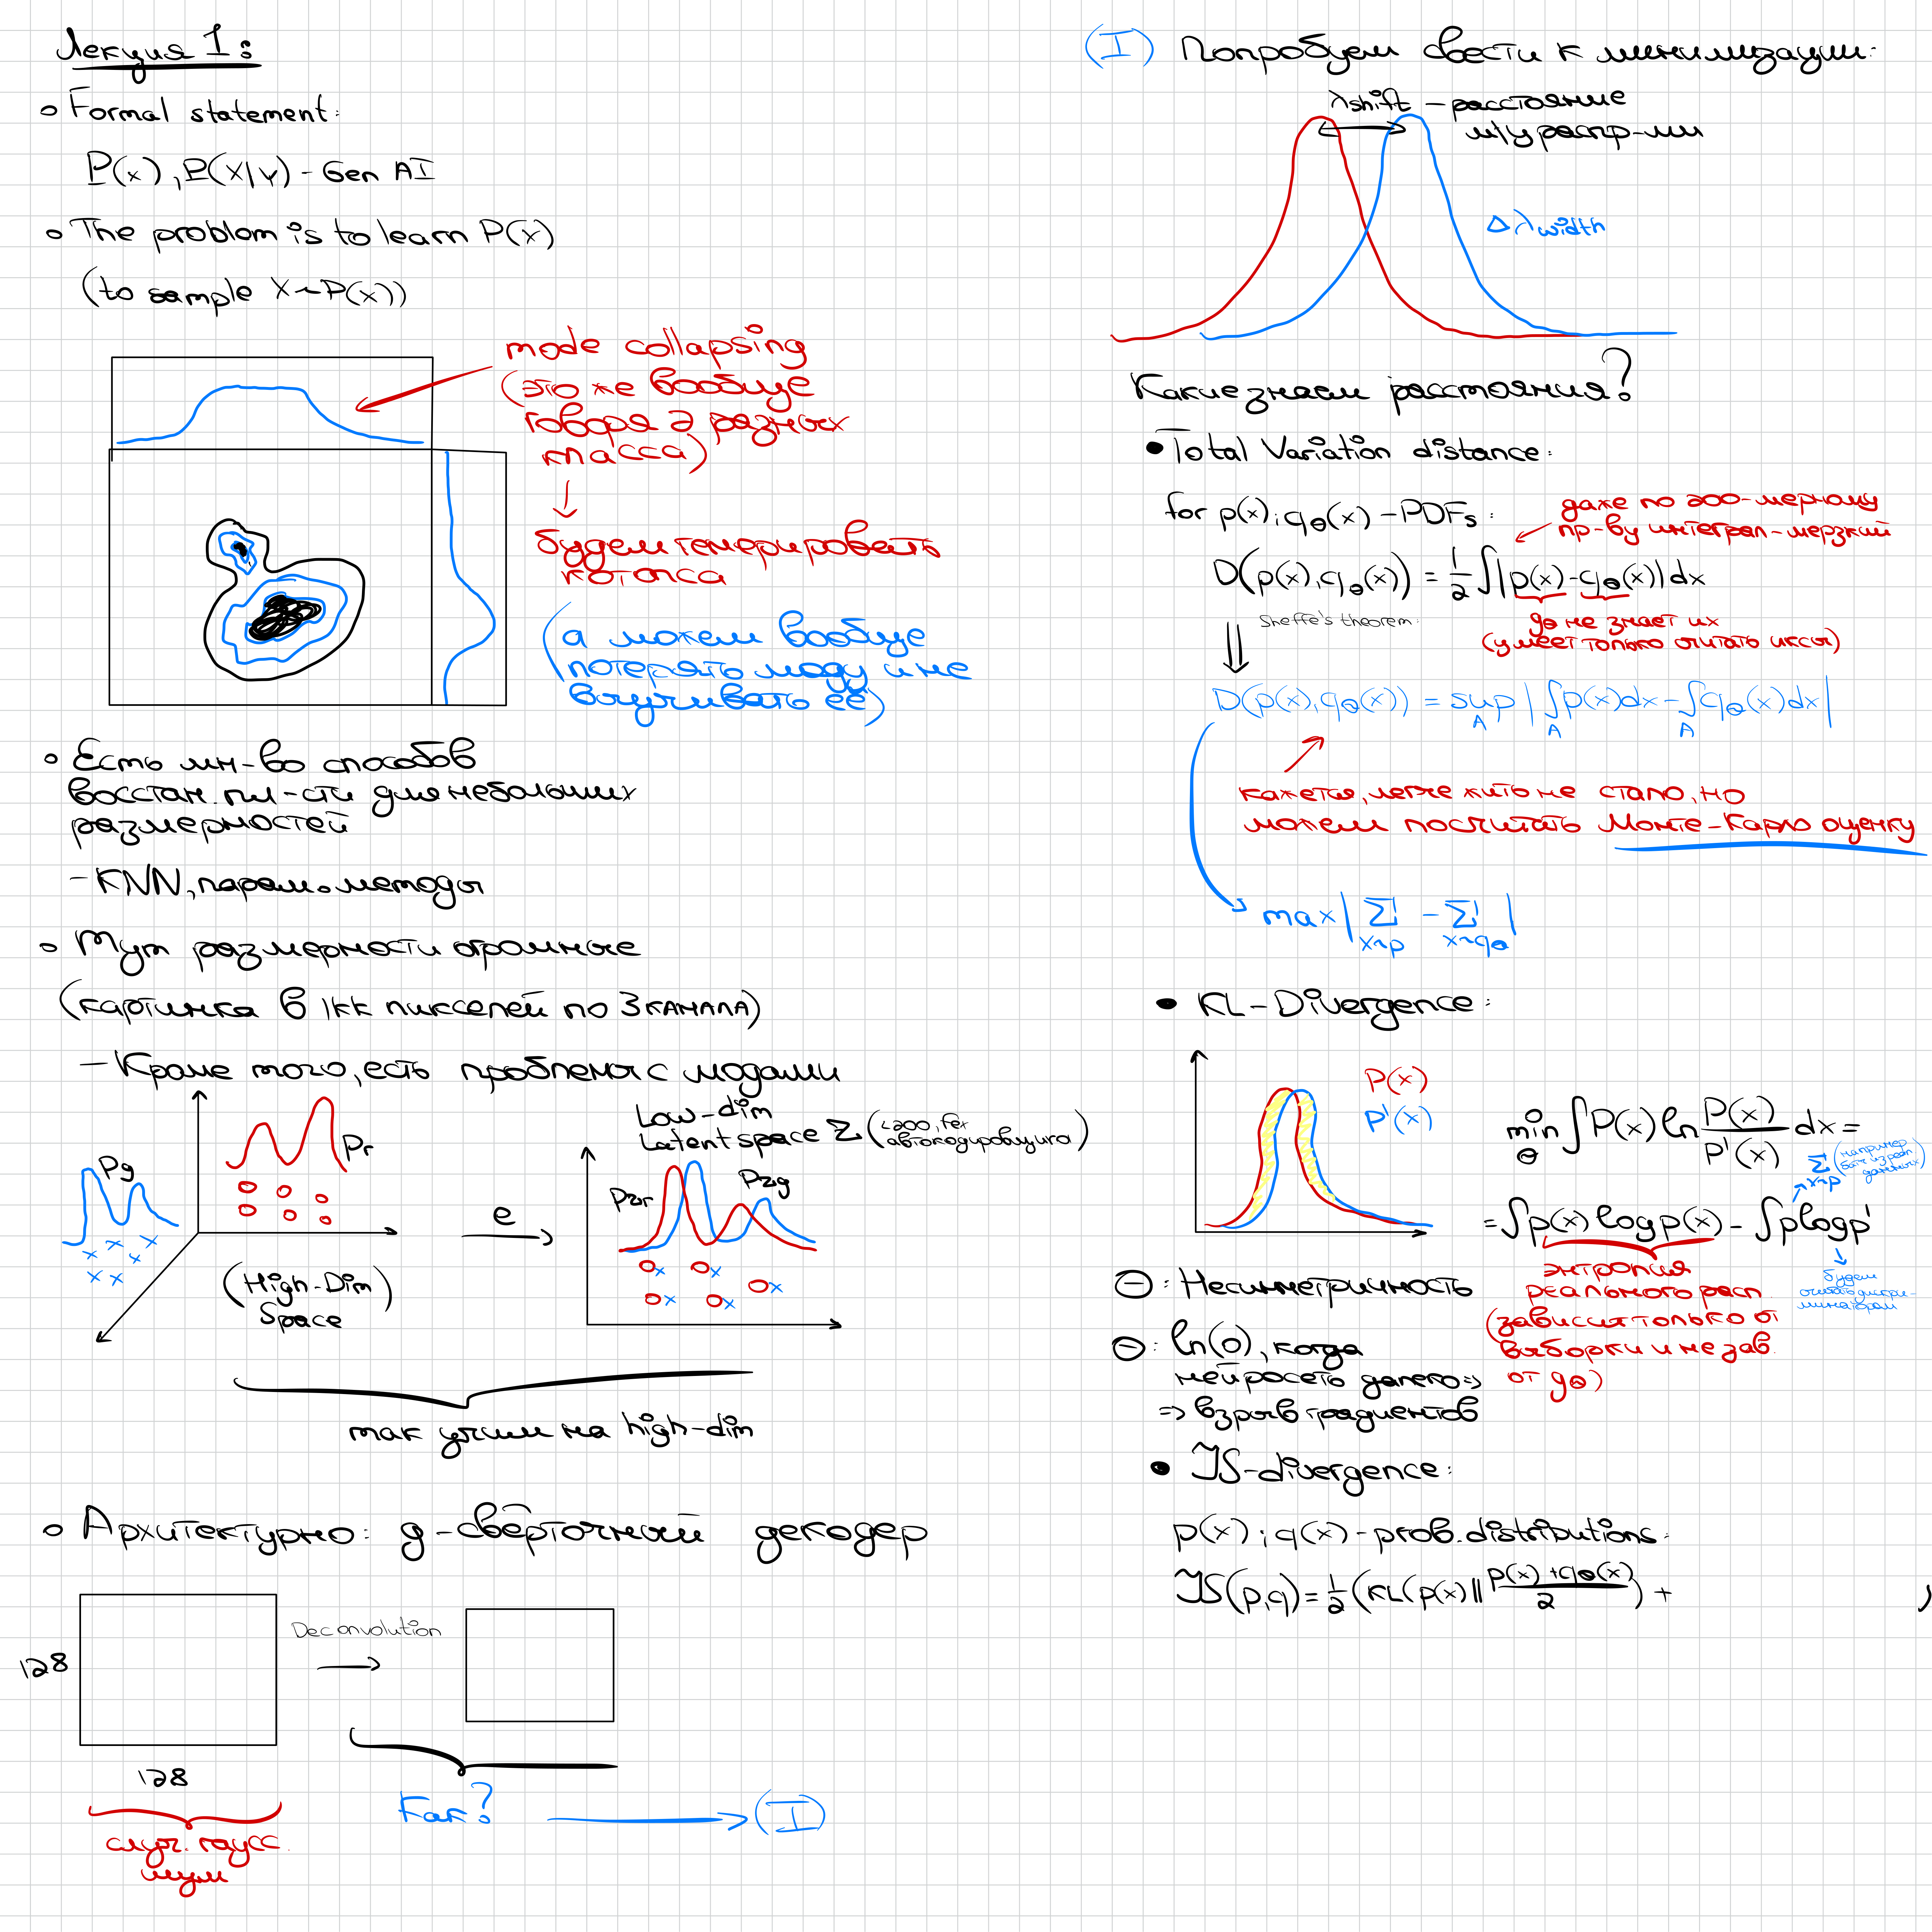 Лекция 1:
Formal statement:
P(x), P(X|Y) - Gen AI
The problem is to learn P(x)
(to sample X~P(x))
mode collapsing
(это же вообще
говоря 2 разных
класса)
↓
будем генерировать
котопса
(а можем вообще
потерять моду и не
выучивать её)
Есть мн-во способов
восстан. пл-сти для небольших
размерностей
- KNN, парам. методы
Тут размерности огромные
(картинка в 1кк пикселей по 3 КАНАЛА)
- Кроме того, есть проблемы с модами
Pg
Pr
(High-Dim
Space)
e
Low-dim
Latent space
Pzr
Pzg
так учим на high-dim
Архитектурно: g - свёрточный декодер
128
Deconvolution
128
случ. гаусс.
шум
Как? → (I)
(I) Попробуем свести к минимизации:
λshift - расстояние
м/у распр-ми
Δλwidth
Какие знаем расстояния?
• Total Variation distance:
for p(x); qθ(x) - PDFs:
даже по 200-мерному
пр-ву интеграл - мерзкий
D(p(x), qθ(x)) = 1/2 ∫|p(x) - qθ(x)|dx
Sheffe's theorem:
gθ не знает их
(умеет только считать иксы)
D(p(x), qθ(x)) = sup_A |∫_A p(x)dx - ∫_A qθ(x)dx|
кажется, легче жить не стало, но
можем посчитать Монте-Карло оценку
max|Σ_{x~p} - Σ_{x~qθ}|
• KL-Divergence:
P(x)
P'(x)
min_θ ∫P(x) ln P(x)/P'(x) dx =
Σ_{x~p} (например
данных)
= ∫p(x) log p(x) - ∫p log p'
энтропия
реального расп.
(зависит только от
выборки и не зав.
от gθ)
будем
считать дискри-
минатором
⊖: Несиметричность
⊖: ln(0), когда
нейросеть далеко ⇒
⇒ взрыв градиентов
• JS-divergence:
p(x); q(x) - prob. distributions:
JS(p,q) = 1/2 (KL(p(x) || p(x)+qθ(x)/2) + )